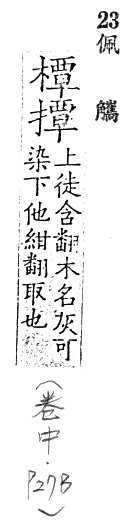 23
佩觿
橝撢
上徒含翻木名灰可
染下他紺翻取也
(卷中.
P27B)